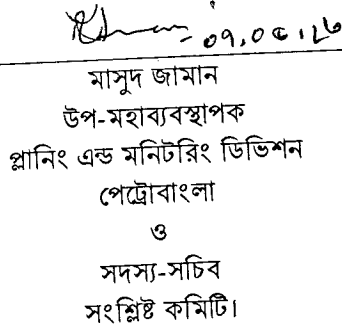 মাসুদ জামান
উপ-মহাব্যবস্থাপক
প্লানিং এন্ড মনিটরিং ডিভিশন
পেট্রোবাংলা
ও
সদস্য-সচিব
সংশ্লিষ্ট কমিটি।